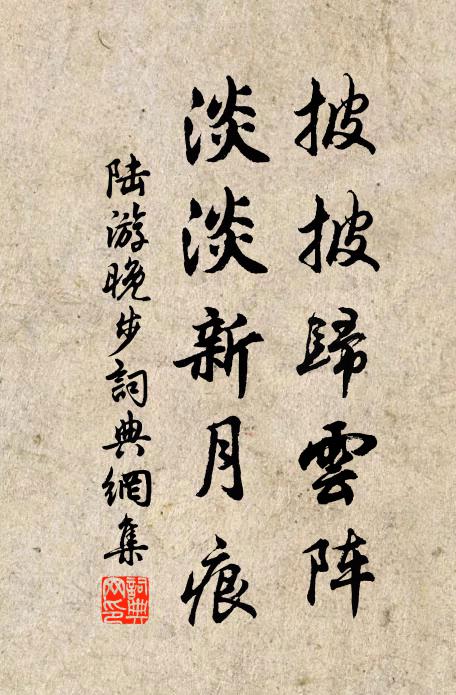 披披歸雲阵
淡淡新月痕
陆游晚步詞典網集
詞典网印